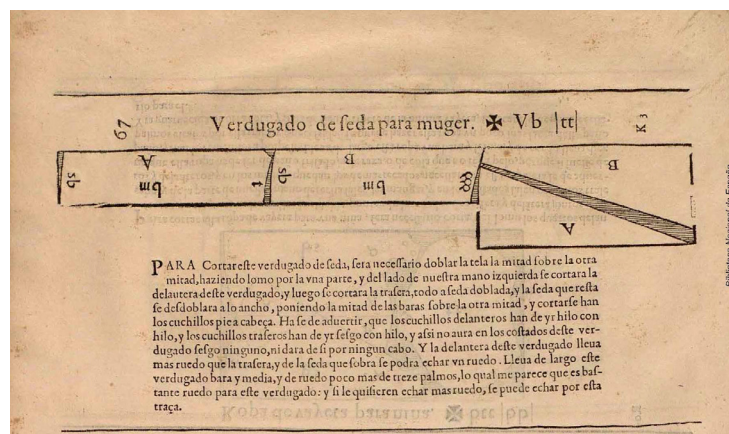 Verdugado de seda para muger. ✠ Vb |tt|
67
K 3
A
B
B
sb
bm
t
sb
bm
A
PARA Cortar este verdugado de seda, sera necessario doblar la tela la mitad sobre la otra
mitad, haziendo lomo por la vna parte, y del lado de nuestra mano izquierda se cortara la
delautera deste verdugado, y luego se cortara la trasera, todo a seda doblada, y la seda que resta
se desdoblara a lo ancho, poniendo la mitad de las baras sobre la otra mitad, y cortarse han
los cuchillos pie a cabeça. Ha se de aduertir, que los cuchillos delanteros han de yr hilo con
hilo, y los cuchillos traseros han de yr sesgo con hilo, y assi no aura en los costados deste ver-
dugado sesgo ninguno, ni dara de si por ningun cabo. Y la delantera deste verdugado lleua
mas ruedo que la trasera, y de la seda que sobra se podra echar vn ruedo. Lleua de largo este
verdugado bara y media, y de ruedo poco mas de treze palmos, lo qual me parece que es bas-
tante ruedo para este verdugado: y si le quisieren echar mas ruedo, se puede echar por esta
traça.
Biblioteca Nacional de España